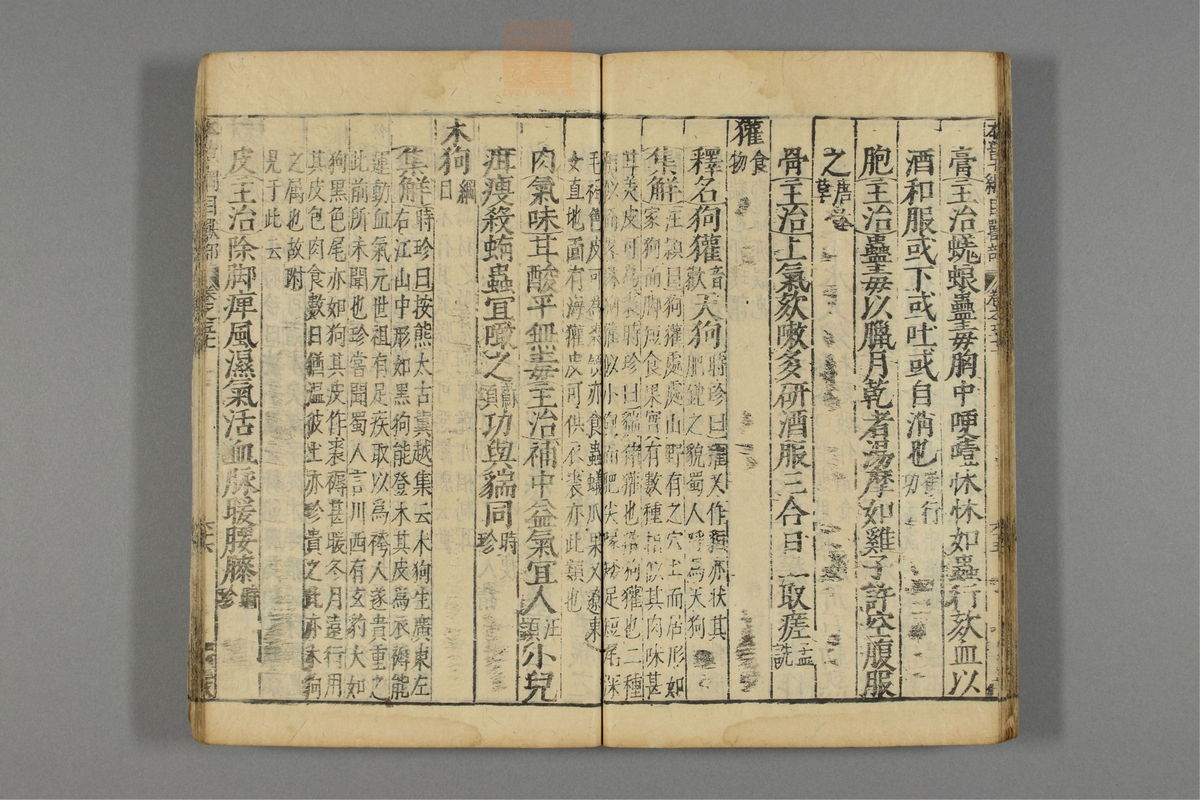 膏主治蜣蜋蠱毒胸中哽噎怵怵如蟲行欬血以
酒和服或下或吐或自消也崔行功
胞主治蠱毒以臘月乾者湯摩如雞子許空腹服
之唐本草
骨主治上氣欬嗽炙研酒服三合日二取瘥孟詵
獾食物
釋名狗獾音歡天狗時珍曰獾又作貛亦狀其
肥鈍之貌蜀人呼為天狗
集解汪頴曰狗獾處處山野有之穴土而居形如
家狗而脚短食果實有數種相似其肉味甚
甘美皮可為裘時珍曰貒猪獾也獾狗獾也二種
相似而畧殊狗獾似小狗而肥尖喙矮足短尾深
毛褐色皮可為裘領亦食蟲蟻瓜果又遼東
女直地面有海獾皮可供衣裘亦此類也
肉氣味甘酸平無毒主治補中益氣宜人汪頴小兒
疳瘦殺蚘蟲宜噉之蘇頌功與貒同時珍
木狗綱目
集解時珍曰按熊太古兾越集云木狗生廣東左
右江山中形如黑狗能登木其皮為衣褥能
運動血氣元世祖有足疾取以為袴人遂貴重之
此前所未聞也珍嘗聞蜀人言川西有玄豹大如
狗黑色尾亦如狗其皮作裘褥甚暖冬月遠行用
其皮包肉食數日猶温彼土亦珍貴之此亦木狗
之屬也故附
見于此云
皮主治除脚痺風濕氣活血脉暖腰膝時珍